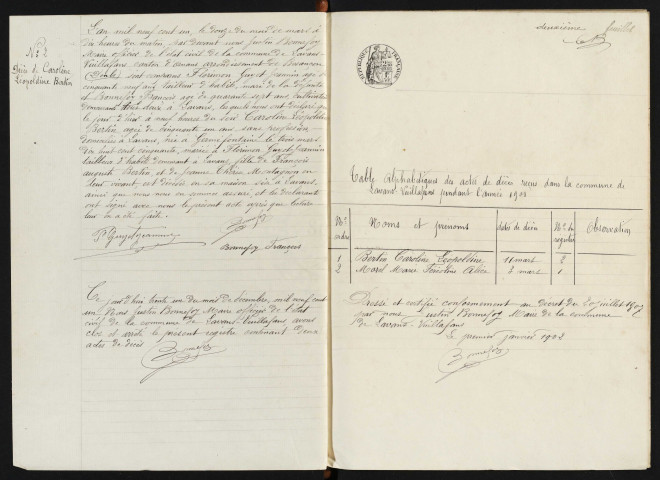 N° 2
Décès de Caroline
Léopoldine Bertin
L'an mil neuf cent un, le douze du mois de mars à
dix heures du matin, Par devant nous Justin Bonnefoy
Maire officier de l'état civil de la commune de Lavans-
Vuillafans canton d'Ornans arrondissement de Besançon
(Doubs) sont comparus Florimon Guyot Jeannin agé de
cinquante neuf ans tailleur d'habits, mari de la défunte
et Bonnefoy François agé de quarante sept ans cultivateur
domiciliés tous deux à Lavans, lesquels nous ont déclaré que
le jour d'hier à neuf heures du soir Caroline Léopoldine
Bertin agée de cinquante un ans sans profession
domiciliée à Lavans, née à Germéfontaine le trois mars
mil huit cent cinquante, mariée à Florimon Guyot Jeannin
tailleur d'habits domicilié à Lavans fille de François
Bertin et de Jeanne Claire
leur vivant, est décédée en sa maison sise à Lavans,
ainsi que nous nous en sommes assuré, et les déclarants
ont signé avec nous le présent acte après que lecture
leur a été faite.
F Guyotjeannin
Bonnefoy François
Ce jourd'hui trente un du mois de décembre, mil neuf cent
un Nous Justin Bonnefoy Maire officier de l'état
civil de la commune de Lavans-Vuillafans avons
clos et arrêté le présent registre contenant deux
actes de décès
Bonnefoy
deuxième feuillet
RÉPUBLIQUE FRANÇAISE
Table alphabétique des actes de décès reçus dans la commune de
Lavans-Vuillafans pendant l'année 1901
N° ordre Noms et prénoms date de décès N° du registre Observation
1 Bertin Caroline Léopoldine 11 mars 2
2 Marie Alice 3 mars 1
Dressé et certifié conformément au décret du 20 juillet 1807
par nous Justin Bonnefoy Maire de la commune
de Lavans-Vuillafans
Le premier janvier 1902
Bonnefoy